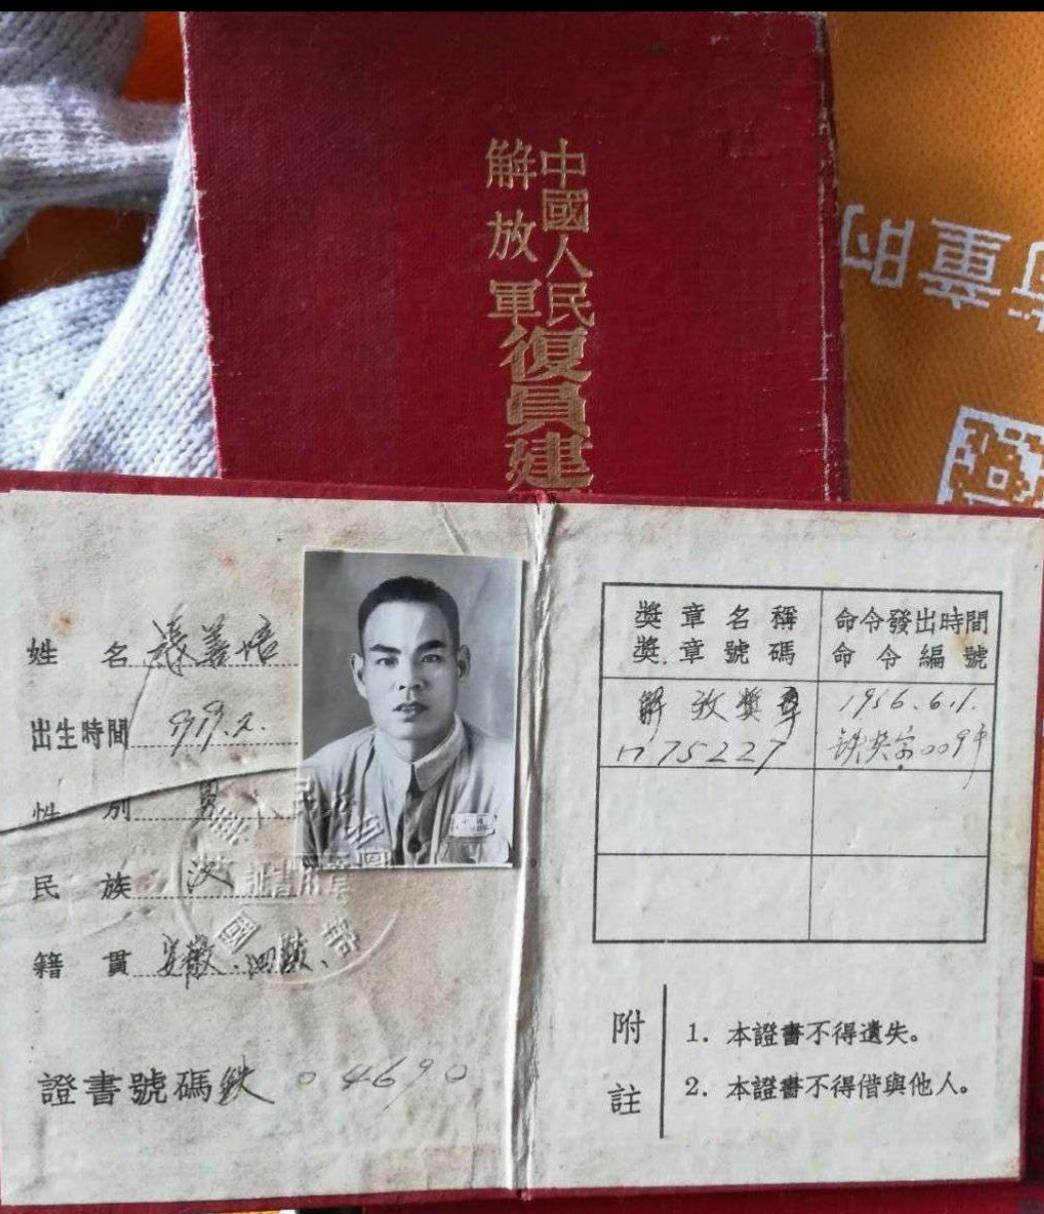 中國人民
解放軍
復員建
姓名 張善培
出生時間 1919.2.
性別 男
民族 汉
籍貫 安徽.泗縣.
證書號碼 鉄04690
獎章名稱 命令發出時間
獎章號碼 命令編號
解放獎章 1956.6.1.
1775227
附註
1. 本證書不得遺失。
2. 本證書不得借與他人。